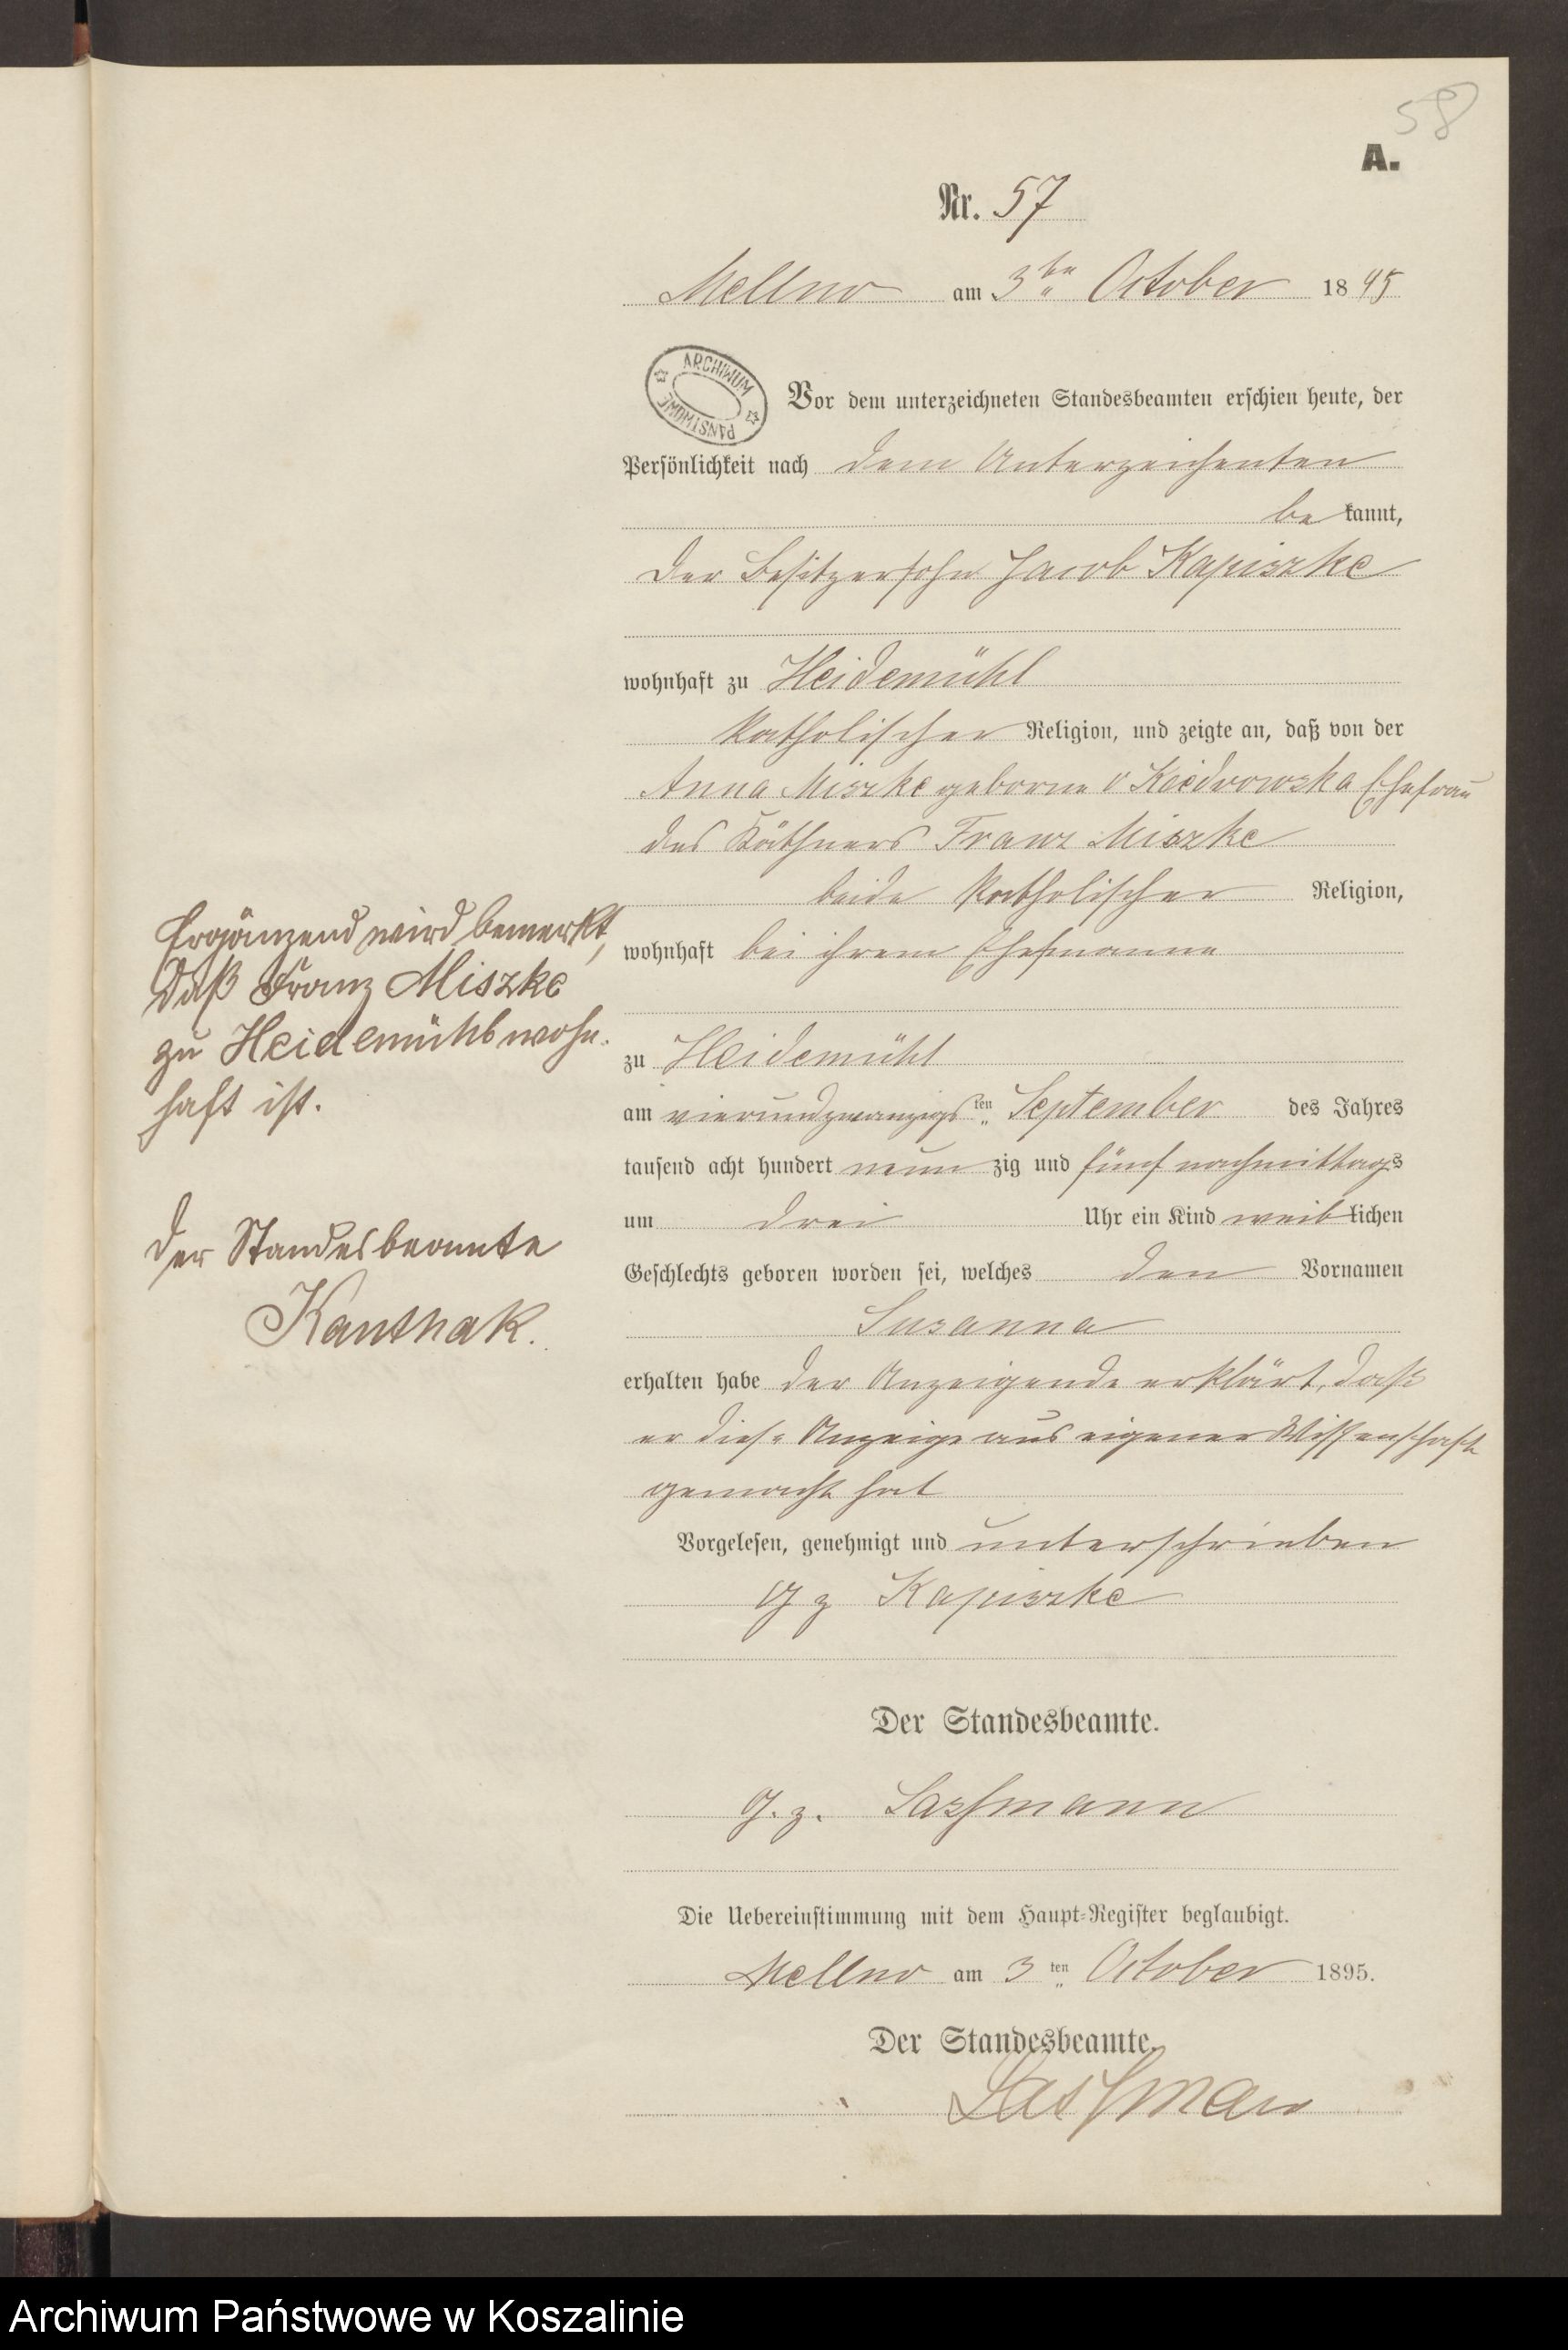 58
A.
Nr. 57
Mellno am 3ten October 1895
ARCHIWUM PAŃSTWOWE
Vor dem unterzeichneten Standesbeamten erschien heute, der
Persönlichkeit nach dem Unterzeichenten
bekannt,
der Besitzersohn Jacob Kapiszke
wohnhaft zu Heidemühl
katholischer Religion, und zeigte an, daß von der
Anna Miszke geborne v Kiedrowska Ehefrau
des Käthners Franz Miszke
beide katholischer Religion,
wohnhaft bei ihrem Ehemanne
zu Heidemühl
am vierundzwanzigsten September des Jahres
tausend acht hundert neunzig und fünf nachmittags
um drei Uhr ein Kind weiblichen
Geschlechts geboren worden sei, welches den Vornamen
Susanna
erhalten habe der Anzeigende erklärt, daß
er diese Anzeige aus eigener Wissenschaft
gemacht hat
Vorgelesen, genehmigt und unterschrieben
gz Kapiszke
Der Standesbeamte.
g. z. Lassmann
Die Uebereinstimmung mit dem Haupt-Register beglaubigt.
Mellno am 3ten October 1895.
Der Standesbeamte.
Lassmann
Ergänzend wird bemerkt,
daß Franz Miszke
zu Heidemühl wohn-
haft ist.
Der Standesbeamte
Kanthak.
Archiwum Państwowe w Koszalinie